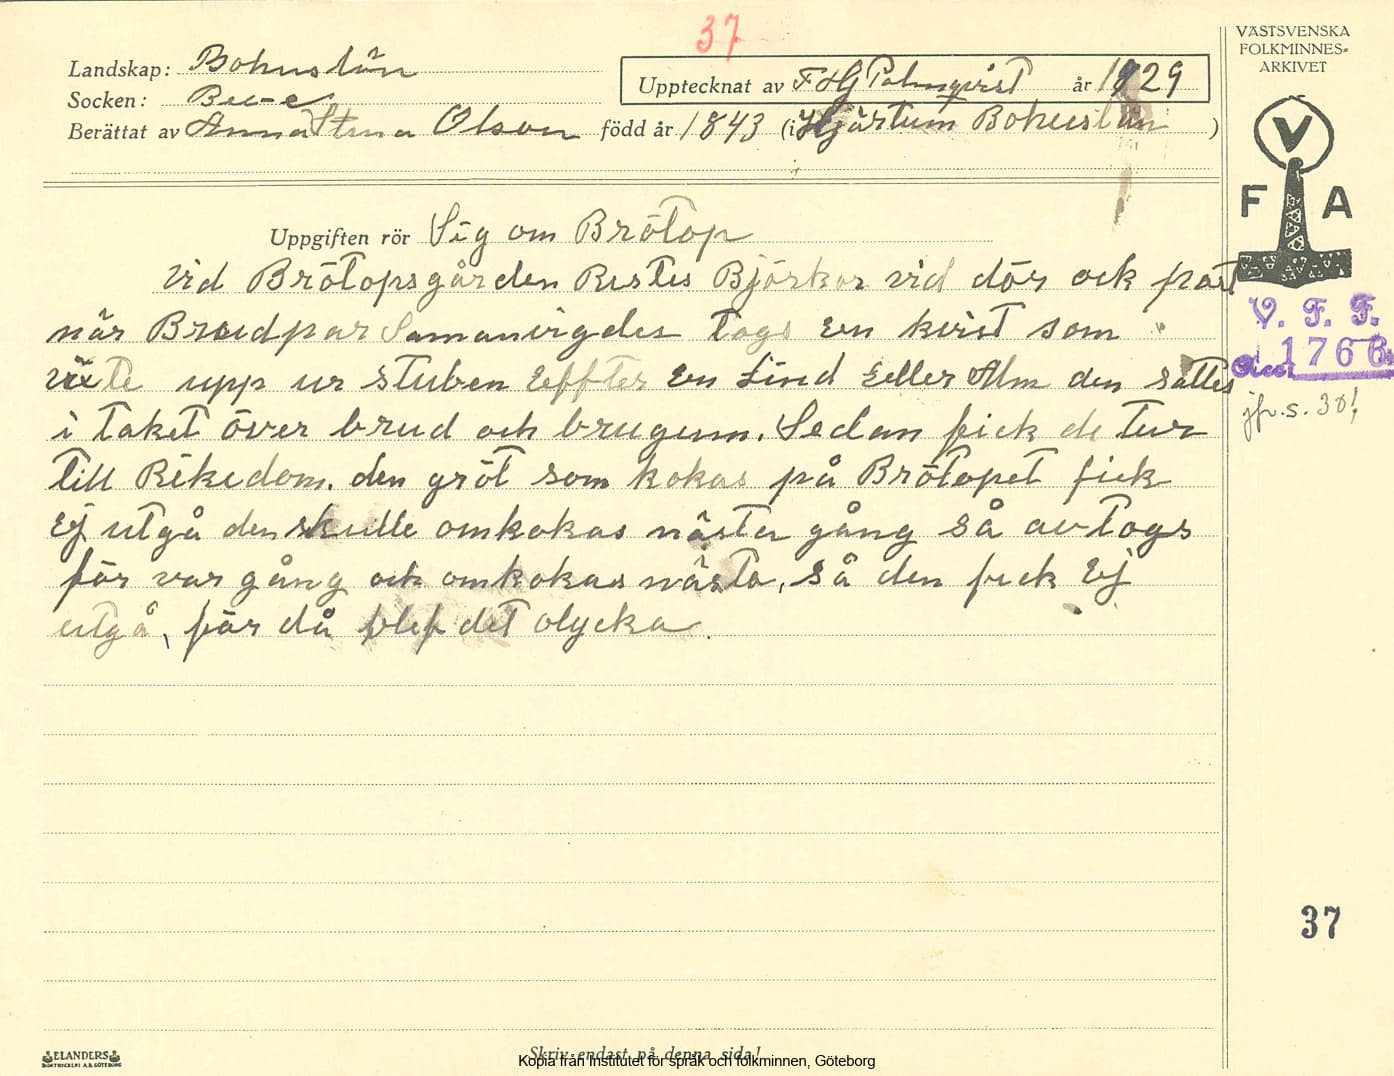 37
VÄSTSVENSKA
FOLKMINNES-
ARKIVET
Landskap: Bohuslän
Upptecknat av F HG Palmqvist år 1929
Socken: Bve-e
Berättat av Anna Stina Olson född år 1843 (i Hjärtum Bohuslän )
V
F A
Uppgiften rör Sig om Brötop
vid Brötopsgården Restes Björkar vid dör ock port
när Brudpar Samanvigdes togs en kvist som
växte upp ur stuben Eeffter en Lind Eeller Alm den sattes
i taket över brud och brugum. Sedan fick de tur
till Rikedom. den gröt som kokas på Brötopet fick
Ej utgå den skulle omkokas nästa gång så avtogs
för var gång och omkokas nästa, så den fick Ej
utgå, för då blef det olycka.
V. F. F.
1766
jfr. s. 30!
37
ELANDERS
BOKTRYCKERI A.B. GÖTEBORG
Skriv endast på denna sida!
Kopia från Institutet för språk och folkminnen, Göteborg